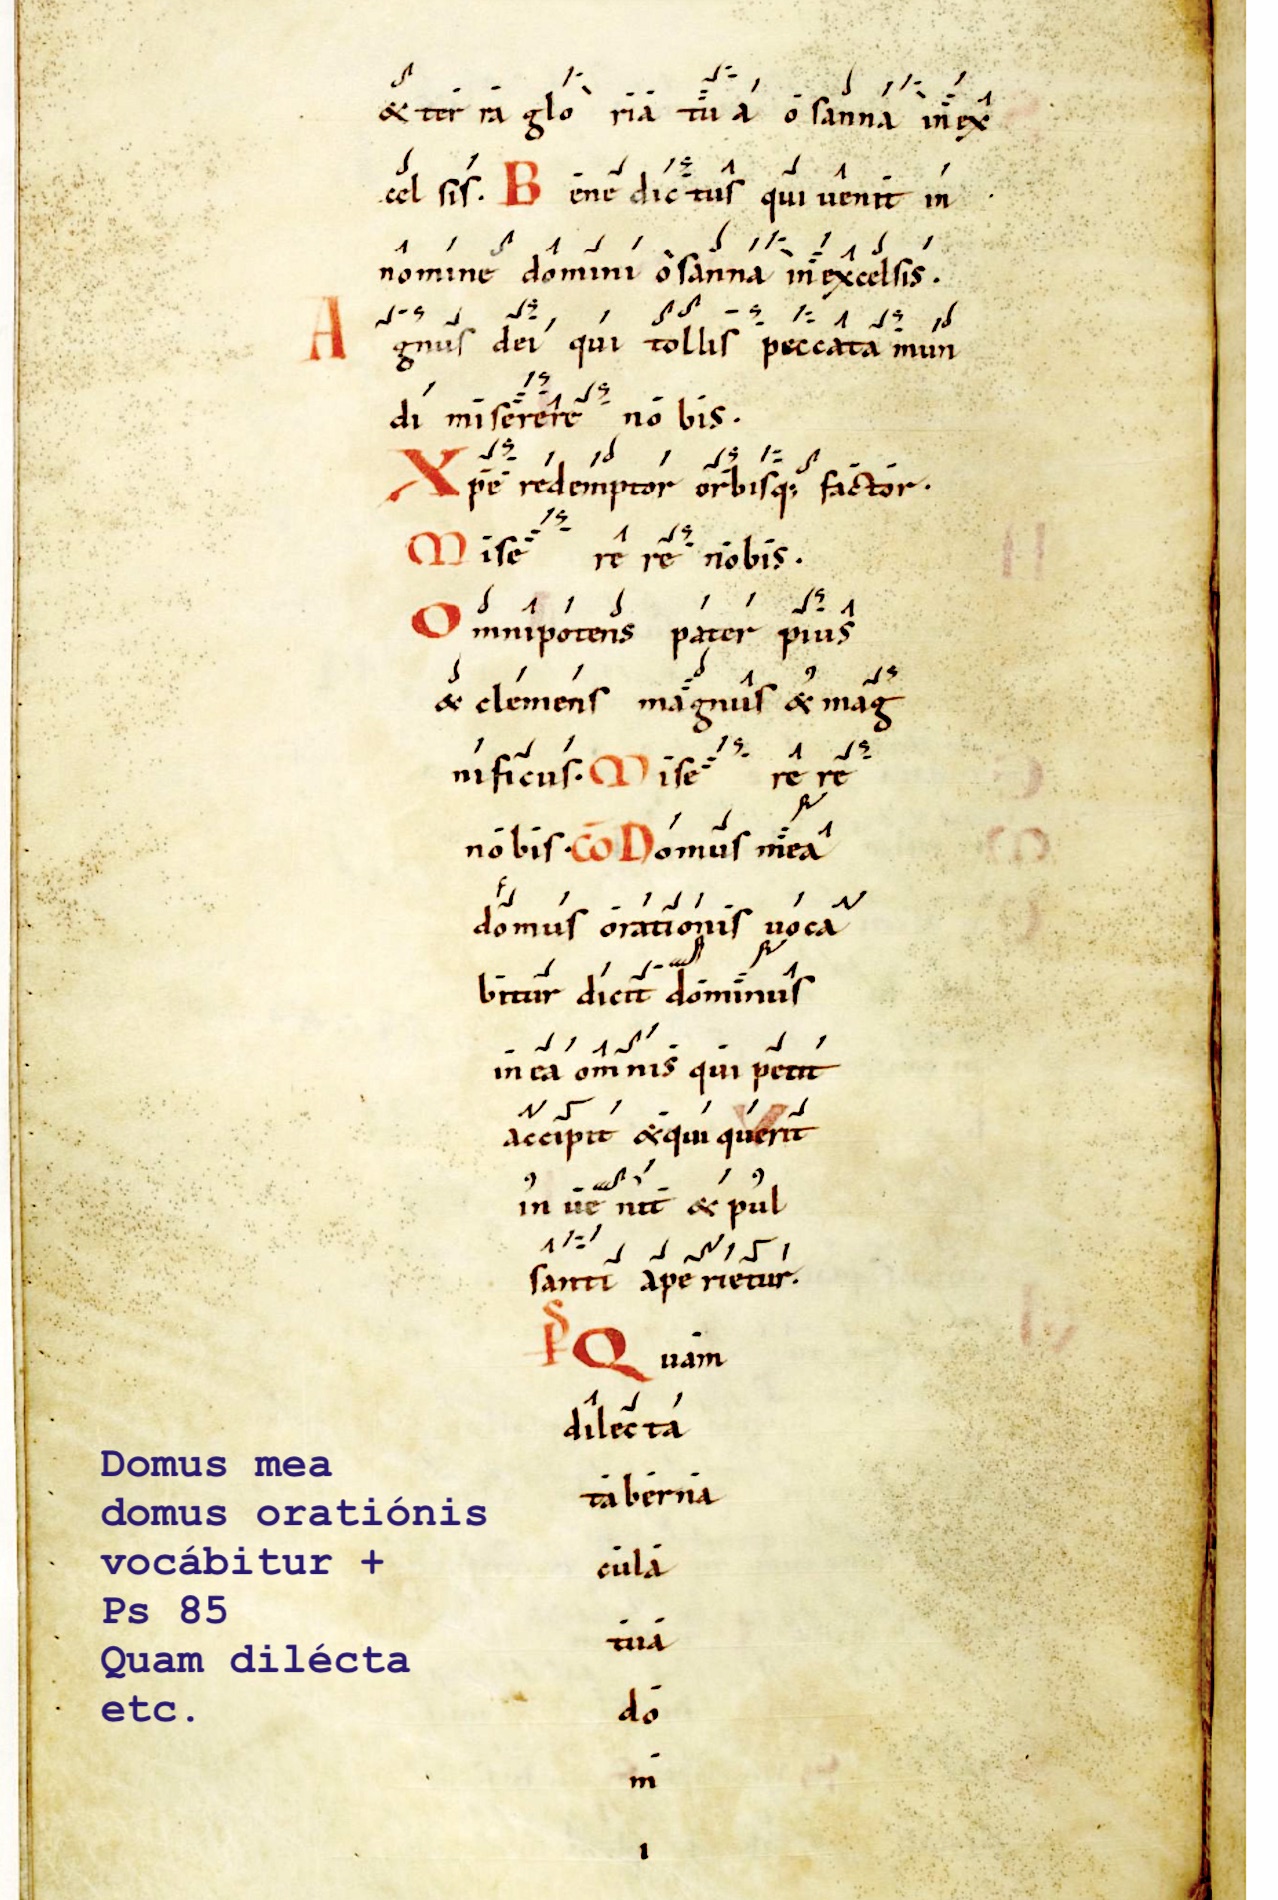 & ter ra glo ria tu a o sanna in ex
cel sis. B ene dictus qui uenit in
nomine domini osanna in excelsis.
A gnus dei qui tollis peccata mun
di miserere no bis.
Xpe redemptor orbisq; factor.
Mise re re nobis.
Omnipotens pater pius
& clemens magnus & mag
nificus. Mise re re
nobis. Co Domus mea
domus orationis uoca
bitur dicit dominus
in ea omnis qui petit
accipit & qui querit
in ue nit & pul
santi ape rietur.
Ps Quam
dilecta
taberna
cula
tua
do
m
i
Domus mea
domus oratiónis
vocábitur +
Ps 85
Quam dilécta
etc.